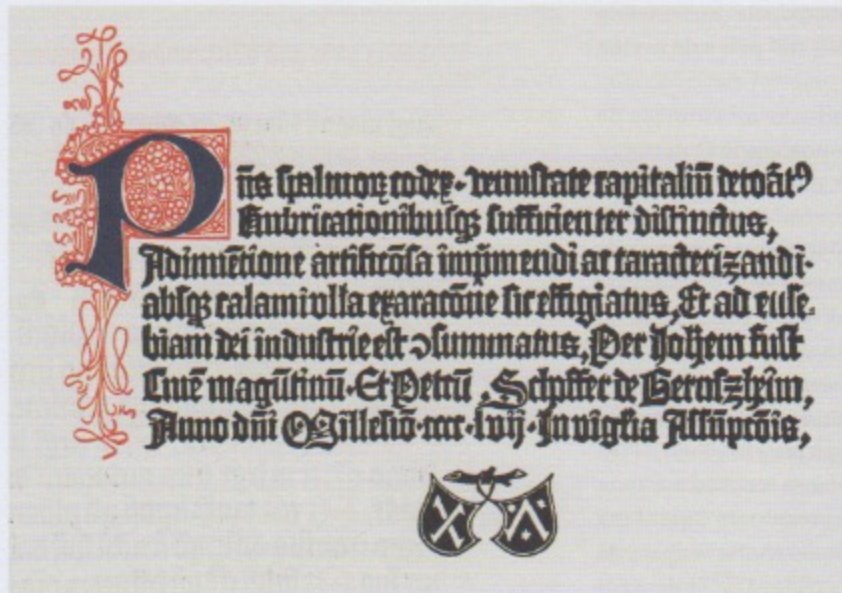 Pñs spalmoꝝ codex · venustate capitaliũ decoãtꝰ
Rubricationibusqꝫ sufficienter distinctus,
Adinuẽtione artificõsa imp̃mendi ac caracterizandi ·
absqꝫ calami vlla exaracõne sic effigiatus, Et ad euse-
biam dei industrie est ↄsummatus, Per Johẽm fust
Ciuẽ magũtinũ · Et Petrũ Schffer de Gernszheim,
Anno dñi Millesiõ · cccc · lvij · In vigĩlia Assũpcõis,